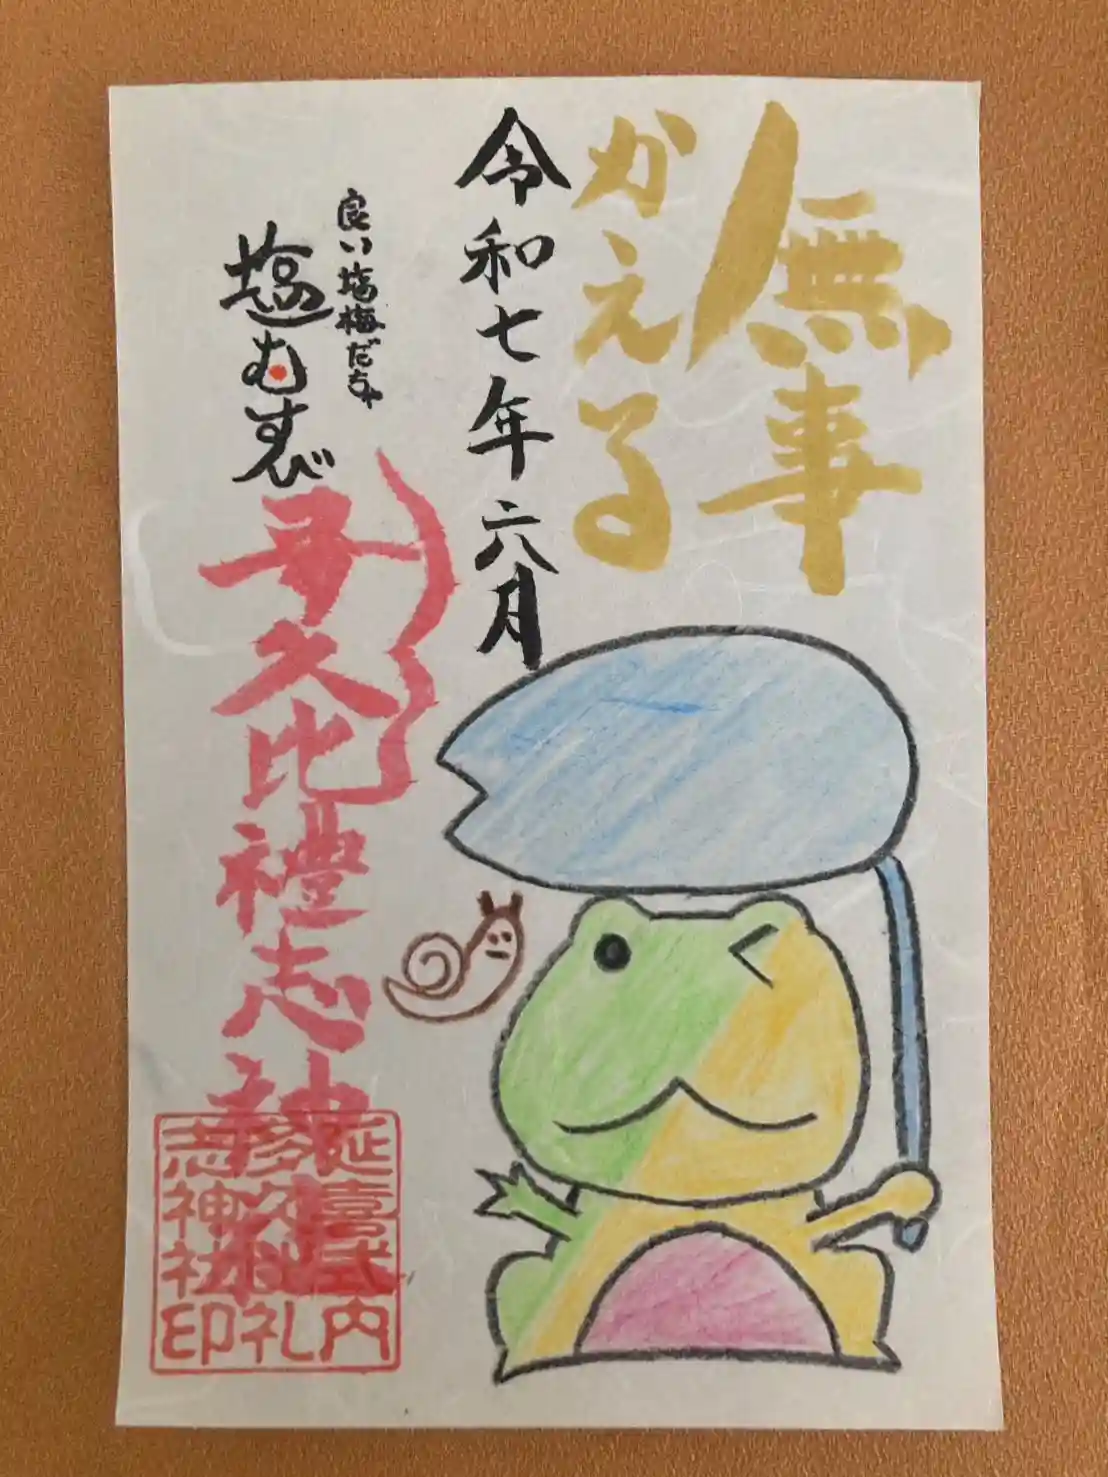 無事
かえる
令和七年六月
良い塩梅だちゃ
塩むすび
多久比禮志神社
延喜式内
多久比礼
志神社印